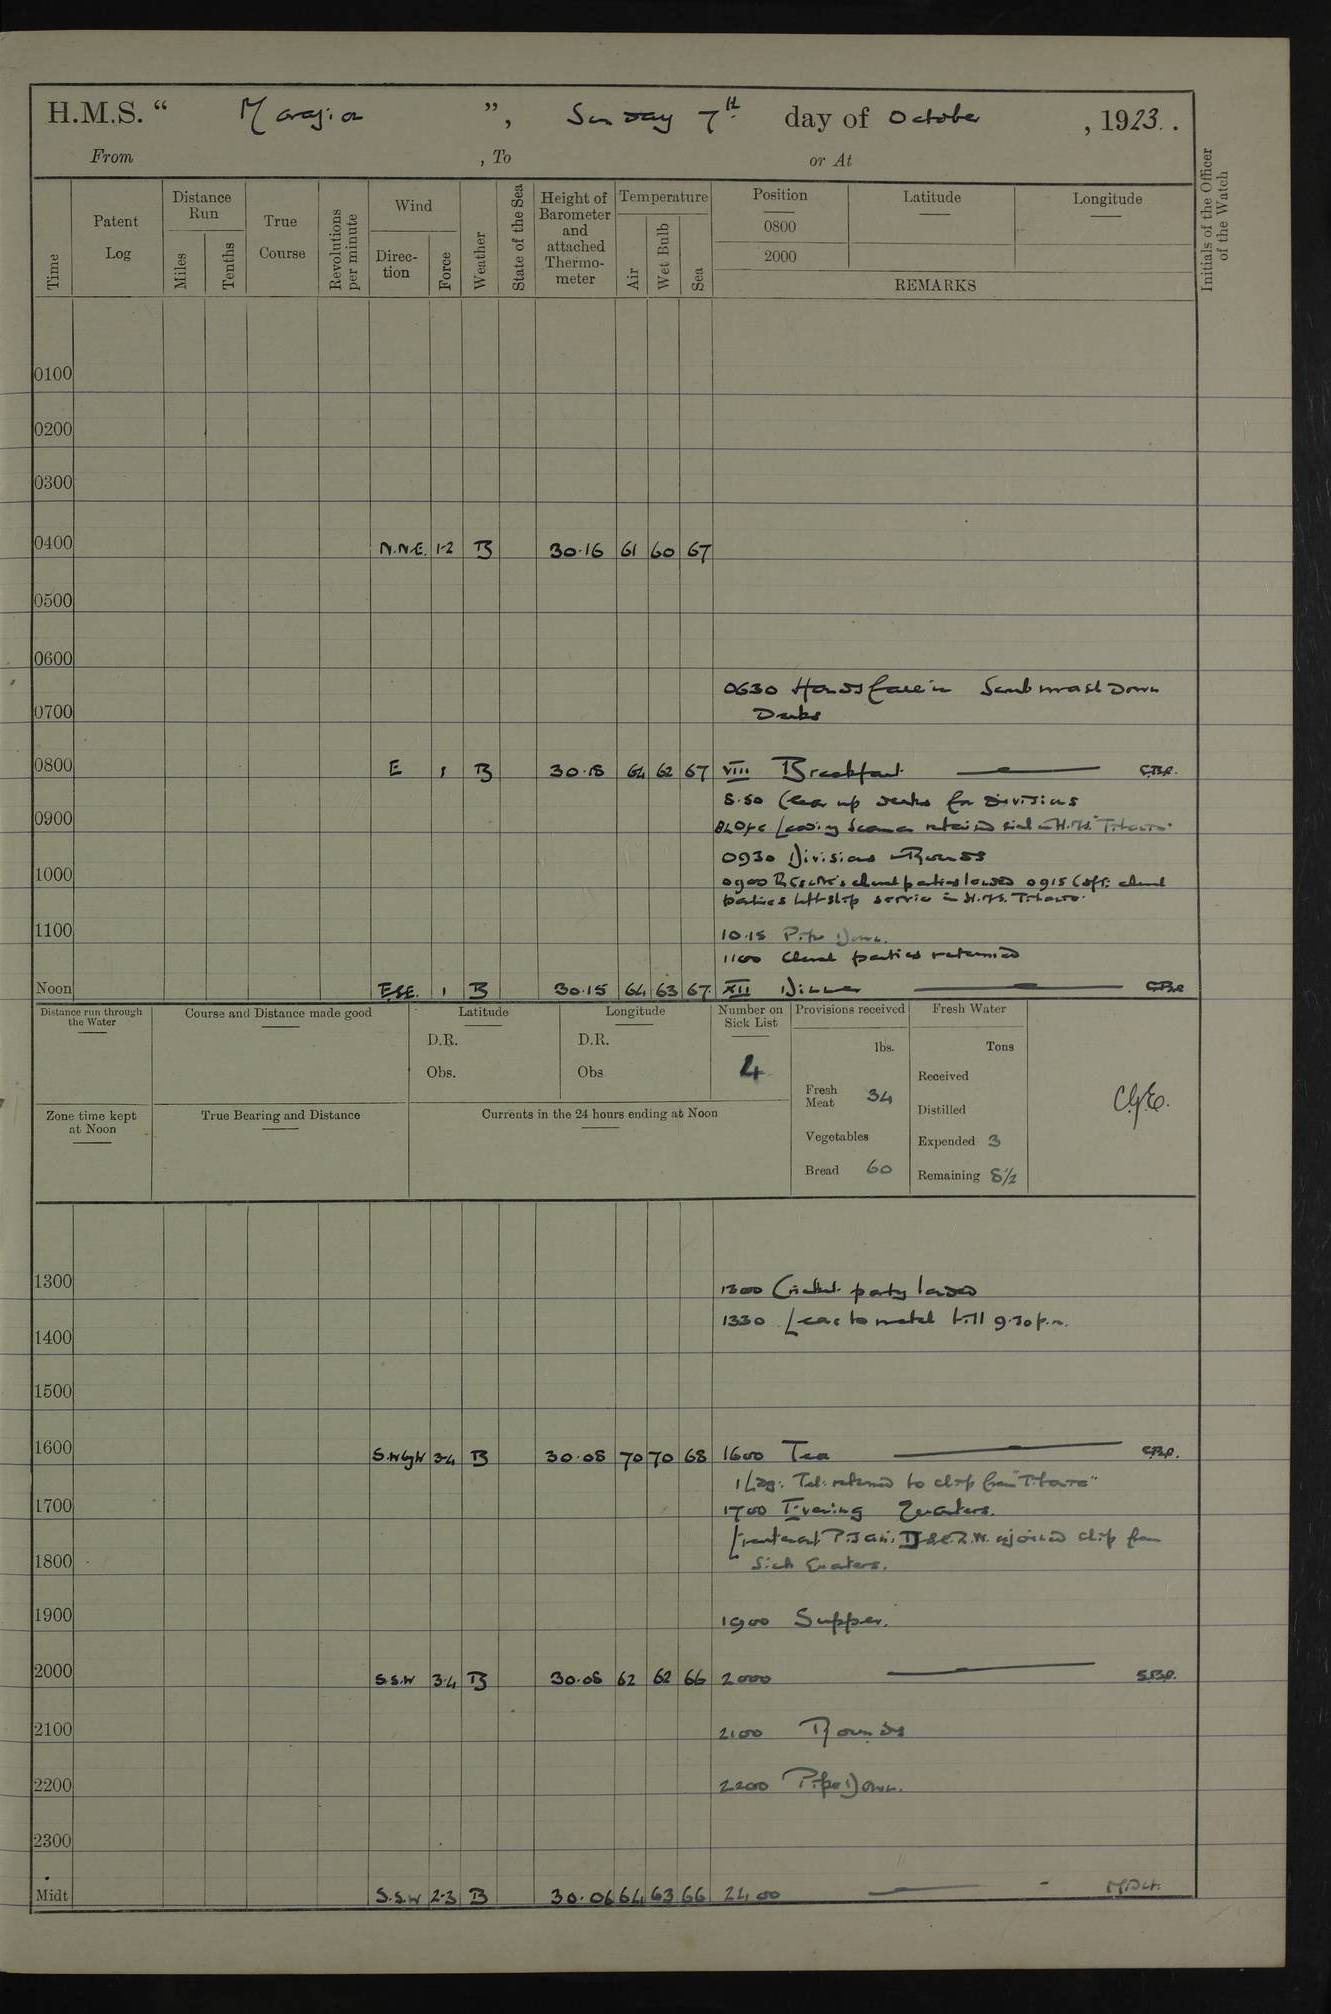 H.M.S. “ Marazion ”, Sunday 7th day of October , 1923.
From , To or At
Time
Patent Log
Distance Run
Miles
Tenths
True Course
Revolutions per minute
Wind
Direc-tion
Force
Weather
State of the Sea
Height of Barometer and attached Thermo-meter
Temperature
Air
Wet Bulb
Sea
Position
0800
2000
Latitude
Longitude
REMARKS
Initials of the Officer of the Watch
0100
0200
0300
0400 N.N.E. 1-2 B 30.16 61 60 67
0500
0600
0630 Hands fall in Scrub mast Down
0700
Decks
0800 E 1 B 30.18 64 62 67 VIII Breakfast
8.50 Clear up decks for Divisions
0900
Leading Seaman returned
0930 Divisions Rounds
1000
0900 parties landed 0915 C of E. church
parties left ship service in H.M.S.
1100
10.15 Pipe Down.
1100 Church parties returned
Noon E.S.E. 1 B 30.15 64 63 67 XII Dinner
Distance run through the Water
Course and Distance made good
Latitude
D.R.
Obs.
Longitude
D.R.
Obs
Number on Sick List
4
Provisions received
lbs.
Fresh Meat 34
Vegetables
Bread 60
Fresh Water
Tons
Received
Distilled
Expended 3
Remaining 8½
Zone time kept at Noon
True Bearing and Distance
Currents in the 24 hours ending at Noon
1300
1300 Cricket party landed
1330 Leave to watch till 9.30 p.m.
1400
1500
1600 S.W by W 3-4 B 30.08 70 70 68 1600 Tea
1 Tel: returned to ship from
1700
1700 Evening Quarters.
Lieutenant R.N. rejoined ship from
1800
Sick Quarters.
1900
1900 Supper.
2000 S.S.W 3-4 B 30.08 62 62 66 2000
2100
2100 Rounds
2200
2200 Pipe Down.
2300
Midt S.S.W 2-3 B 30.06 64 63 66 2400